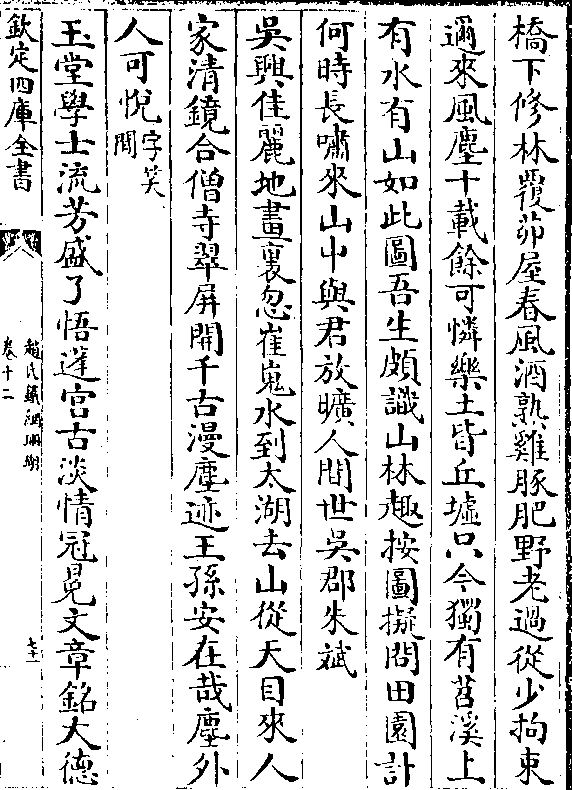 橋下修林覆茆屋春風酒熟雞豚肥野老過從少拘束
邇來風塵十載餘可憐樂土皆丘墟只今獨有苕溪上
有水有山如此圖吾生頗識山林趣按圖擬問田園計
何時長嘯來山中與君放曠人間世吳郡朱斌
吳興佳麗地畫裏忽崔嵬水到太湖去山從天目來人
家清鏡合僧寺翠屏開千古漫塵迹王孫安在哉塵外
人可悅字芖
間
玉堂學士流芳盛了悟蓬宫古淡情冠冕文章銘大德
欽定四庫全書
趙氏鐵網珊瑚
卷十二